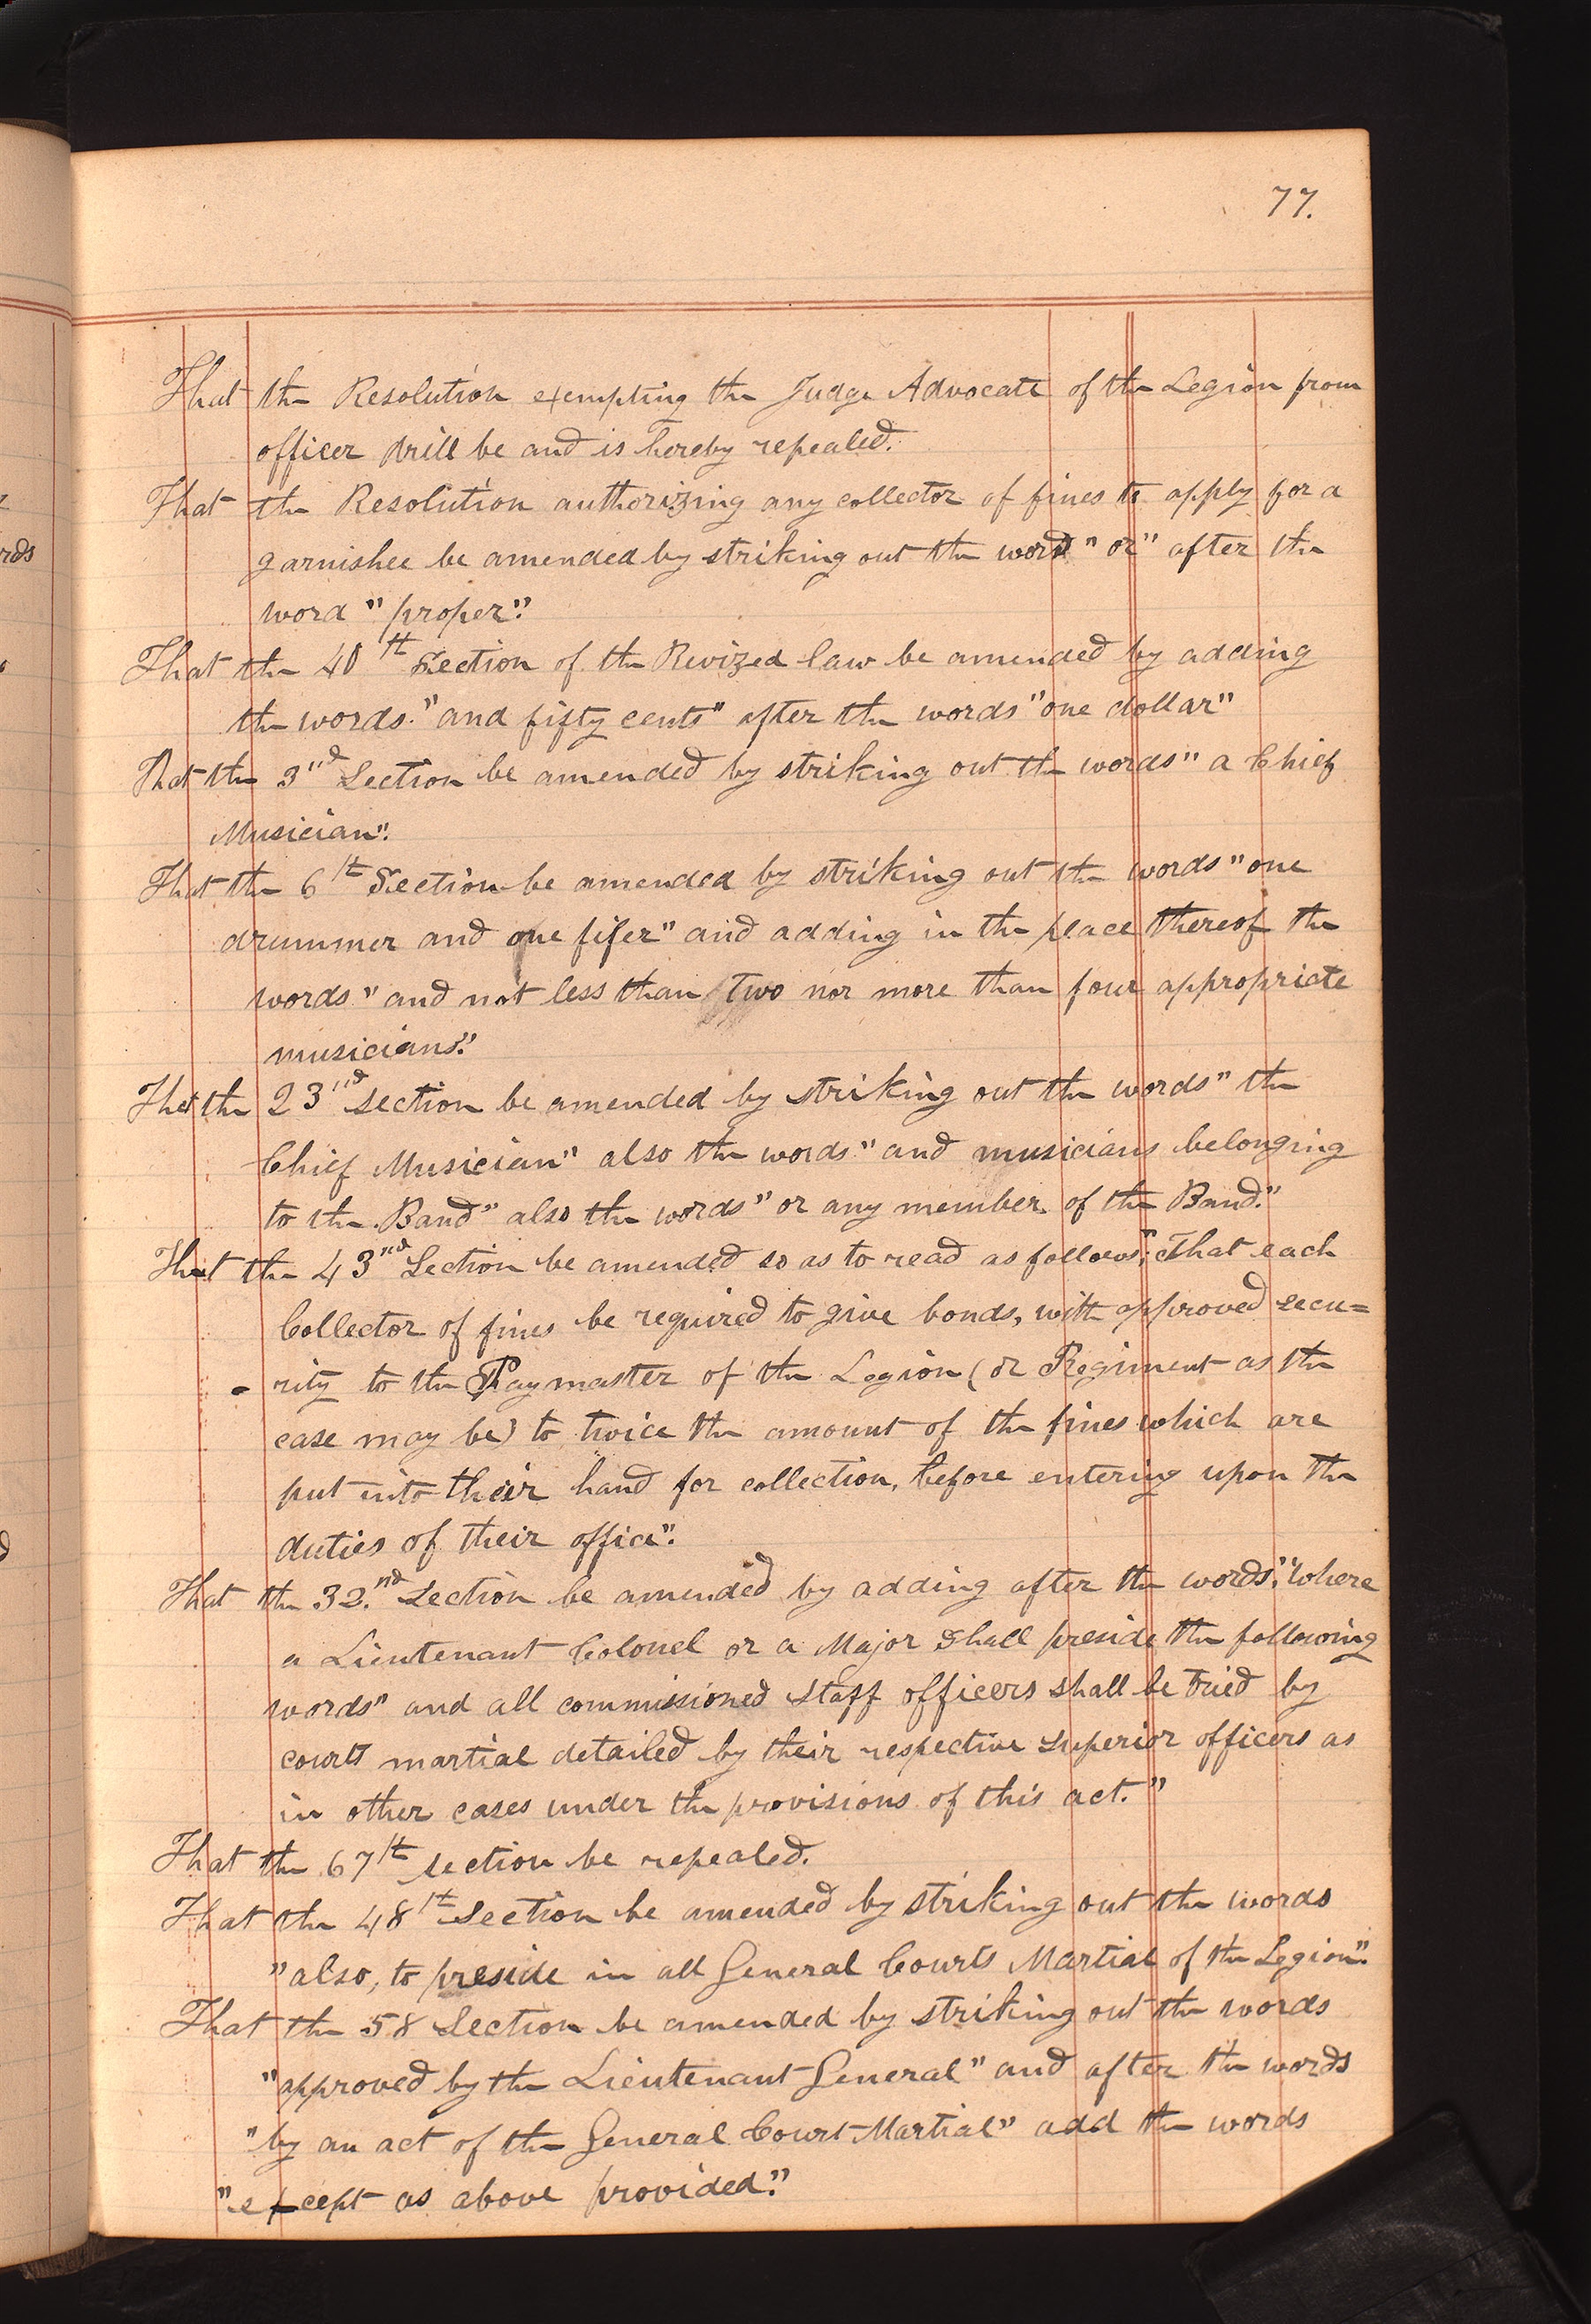 77.
That the Resolution exempting the Judge Advocate of the Legion from
officer drill be and is hereby repealed.
That the Resolution authorizing any collector of fines to apply for a
garnishee be amended by striking out the word "or" after the
word "proper".
That the 40th Section of the Revized law be amended by adding
the words "and fifty cents" after the words "one dollar"
That the 3rd Section be amended by striking out the words "a Chief
Musician".
That the 6th Section be amended by striking out the words "one
drummer and one fifer" and adding in the place thereof the
words "and not less than two nor more than four appropriate
musicians."
That the 23nd section be amended by striking out the words "the
Chief Musician" also the words "and musicians belonging
to the Band" also the words "or any member of the Band."
That the 43nd Section be amended so as to read as follows; "That each
Collector of fines be required to give bonds, with approved secu=
rity to the Paymaster of the Legion (or Regiment as the
case may be) to twice the amount of the fines which are
put into their hand for collection, before entering upon the
duties of their office".
That the 32.nd Section be amended by adding after the words, "Where
a Lieutenant Colonel or a Major shall preside the following
words" and all commissioned staff officers shall be tried by
courts martial detailed by their respective superior officers as
in other cases under the provisions of this act."
That the 67th section be repealed.
That the 48th Section be amended by striking out the words
"also, to preside in all General Courts Martial of the Legion".
That the 58 Section be amended by striking out the words
"approved by the Lieutenant General" and after the words
"by an act of the General Court Martial" add the words
"except as above provided."
rds